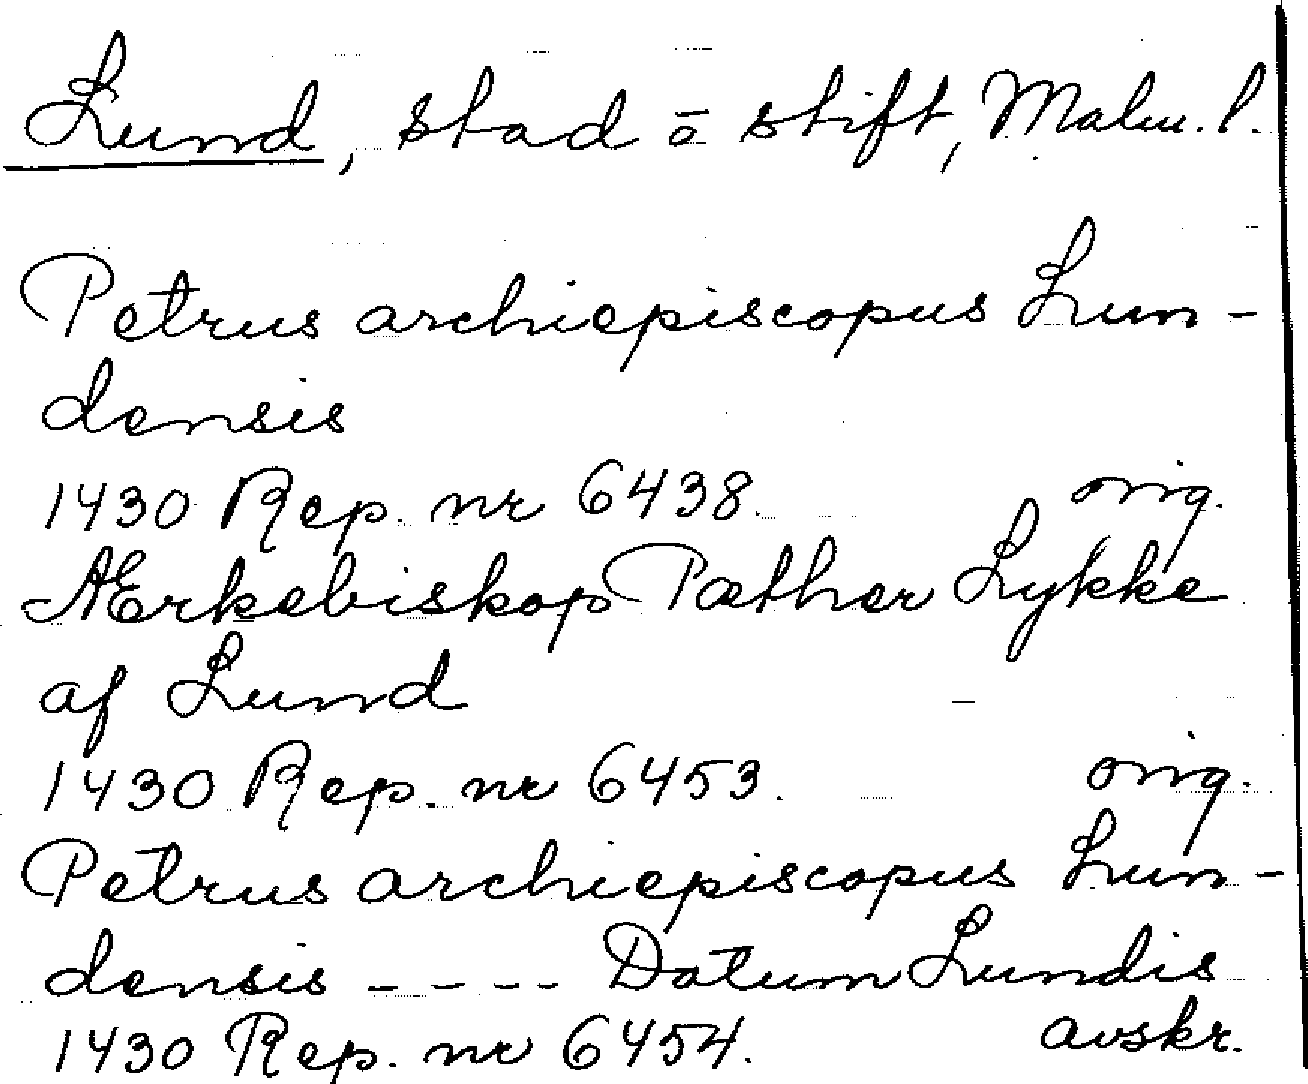 Lund, stad o stift, Malm. l.
Petrus archiepiscopus Lun-
densis
1430 Rep. nr 6438. orig.
Ærkebiskop Pæther Lykke
af Lund
1430 Rep. nr 6453. orig.
Petrus archiepiscopus Lun-
densis - - - - Datum Lundis
1430 Rep. nr 6454. avskr.